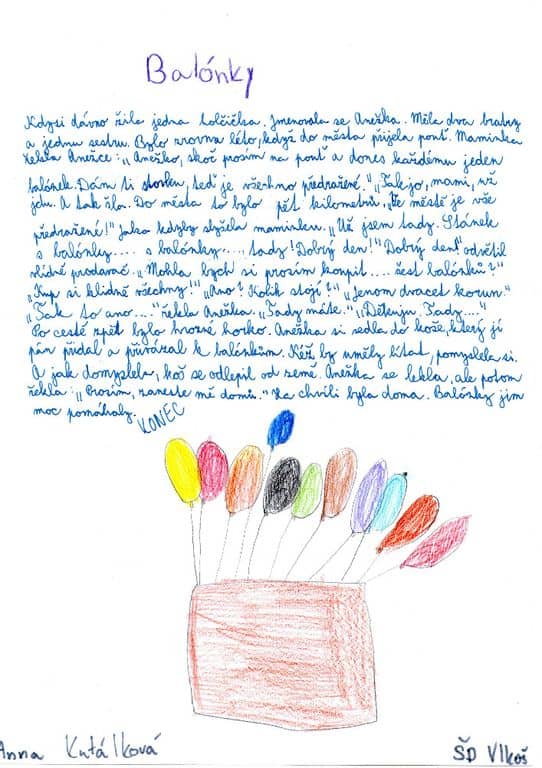 Balónky
Kdysi dávno žila jedna holčička. Jmenovala se Anežka. Měla dva bratry
a jednu sestru. Bylo zrovna léto, když do města přijela pouť. Maminka
řekla Anežce: „Anežko, skoč prosím na pouť a dones každému jeden
balónek. Dám ti stovku, teď je všechno předražené." „Tak jo, mami, už
jdu. A tak šla. Do města to bylo pět kilometrů. „Ve městě je vše
předražené!" Jako kdyby slyšela maminku. „Už jsem tady. Stánek
s balónky.... s balónky...., tady! Dobrý den!" Dobrý den!" odvětil
vlídně prodavač. „Mohla bych si prosím koupit.... šest balónků?"
„Kup si klidně všechny!" „Ano? Kolik stojí?" „Jenom dvacet korun."
„Tak to ano...." řekla Anežka. „Tady máte." „Děkuju. Tady...."
Po cestě zpět bylo hrozné horko. Anežka si sedla do koše, který jí
pán přidal a přivázal k balónkům. Kéž by uměly lítat, pomyslela si.
A jak domyslela, koš se odlepil od země. Anežka se lekla, ale potom
řekla: „Prosím, zaneste mě domů." Za chvíli byla doma. Balónky jim
moc pomáhaly. KONEC
Anna Kutálková ŠD Vlkoš